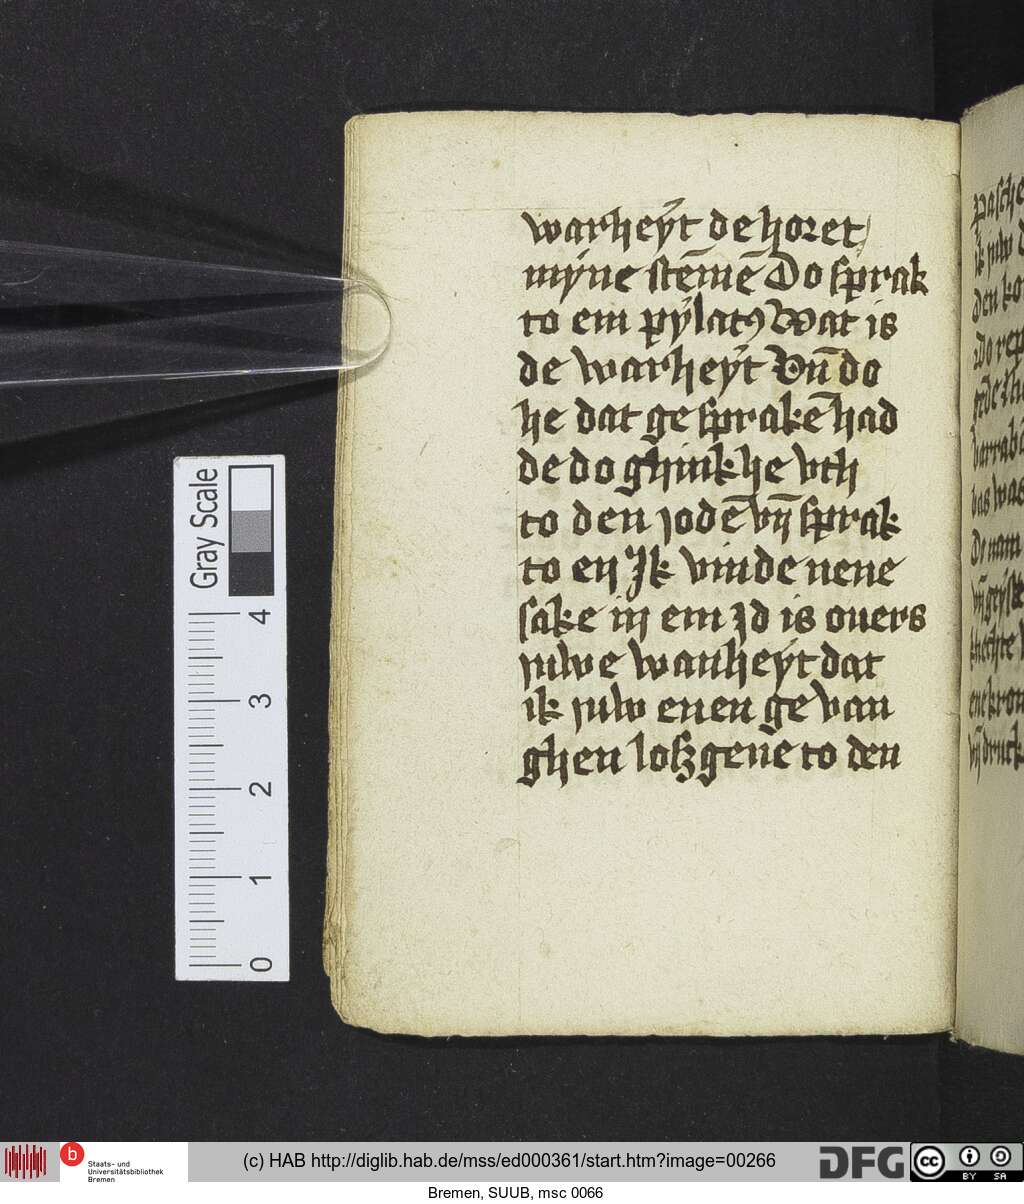 warheyt de horet
myne stēmē Do sprak
to em pylatꝰ Wat is
de warheyt Vn̄ do
he dat ge sprakē had
de do ghink he vth
to den jodē vn̄ sprak
to en Ik vinde nene
sake in em Id is ouers
juwe wanheyt dat
ik juw enen ge van
ghen losz geue to den
pasche
ik juw
den
Do rep
was
De nam
Gray Scale
4
3
2
1
0
b
Staats- und
Universitätsbibliothek
Bremen
(c) HAB http://diglib.hab.de/mss/ed000361/start.htm?image=00266
DFG
cc
BY SA
Bremen, SUUB, msc 0066